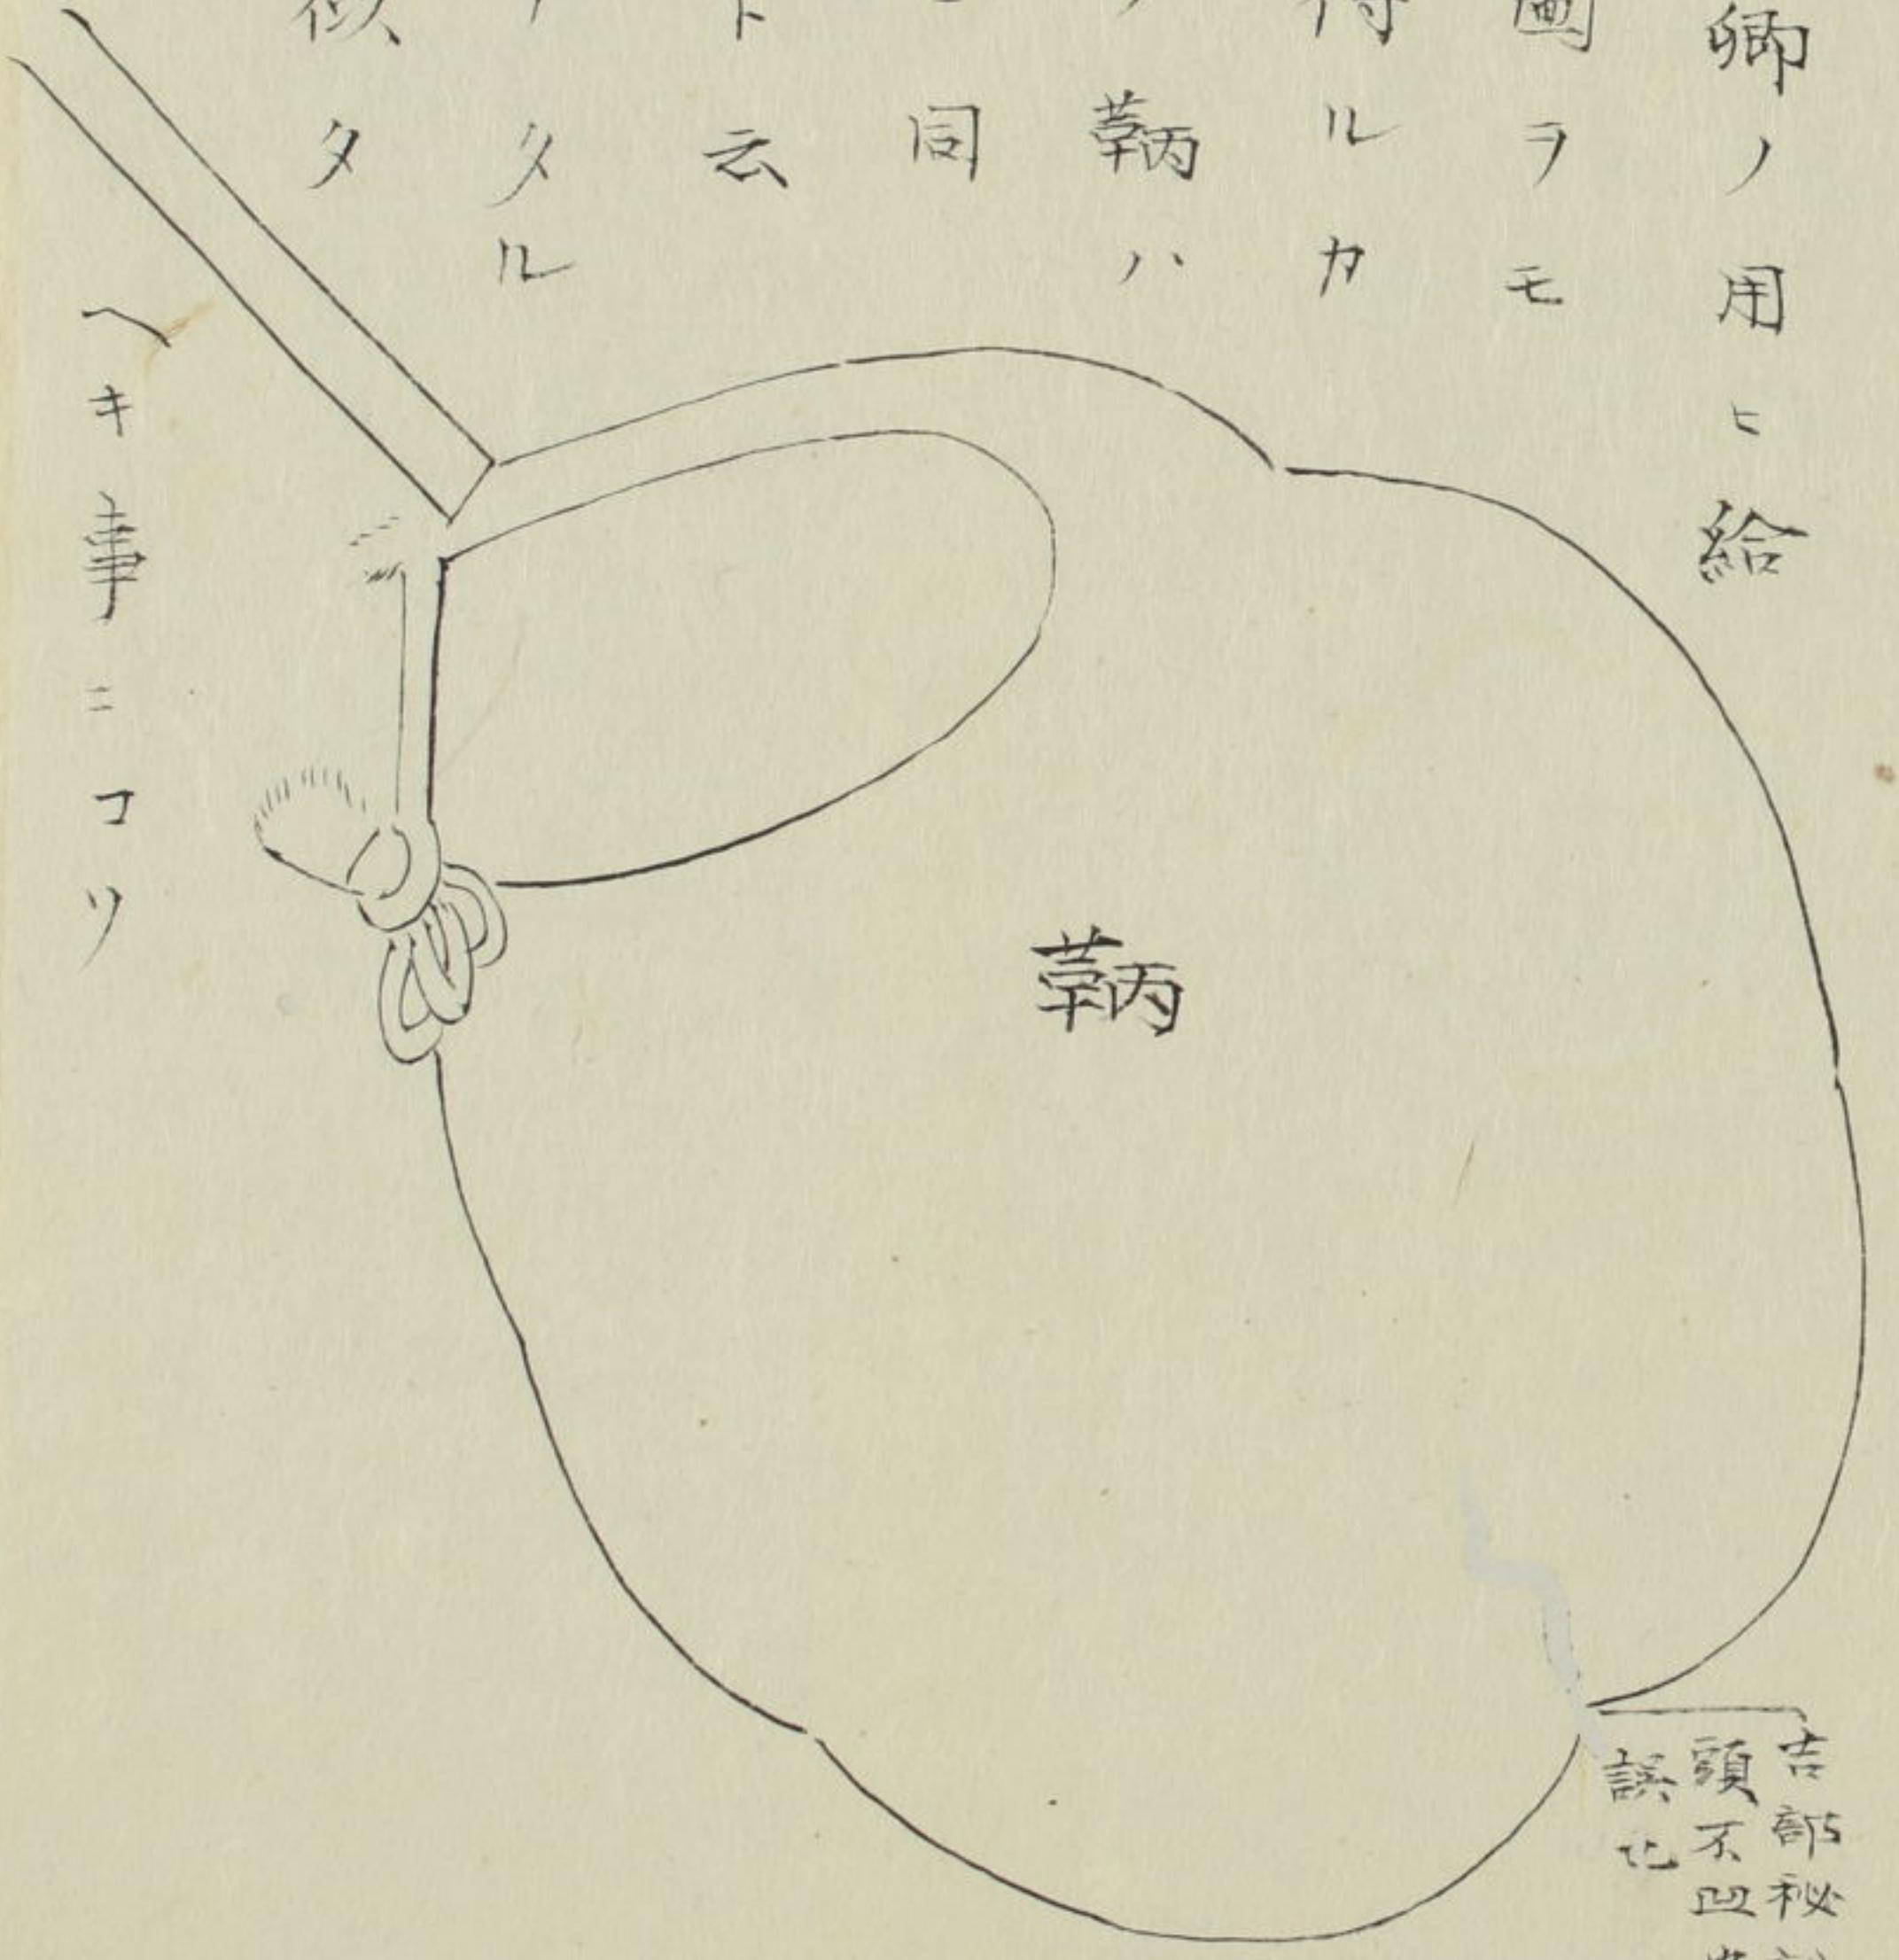 卿ノ用ヒ給
圖ヲモ
ルカ
鞆ハ
同
ト云
タル
似タ
ヘキ事ニコソ
鞆
吉部秘
頭不凹
誤也